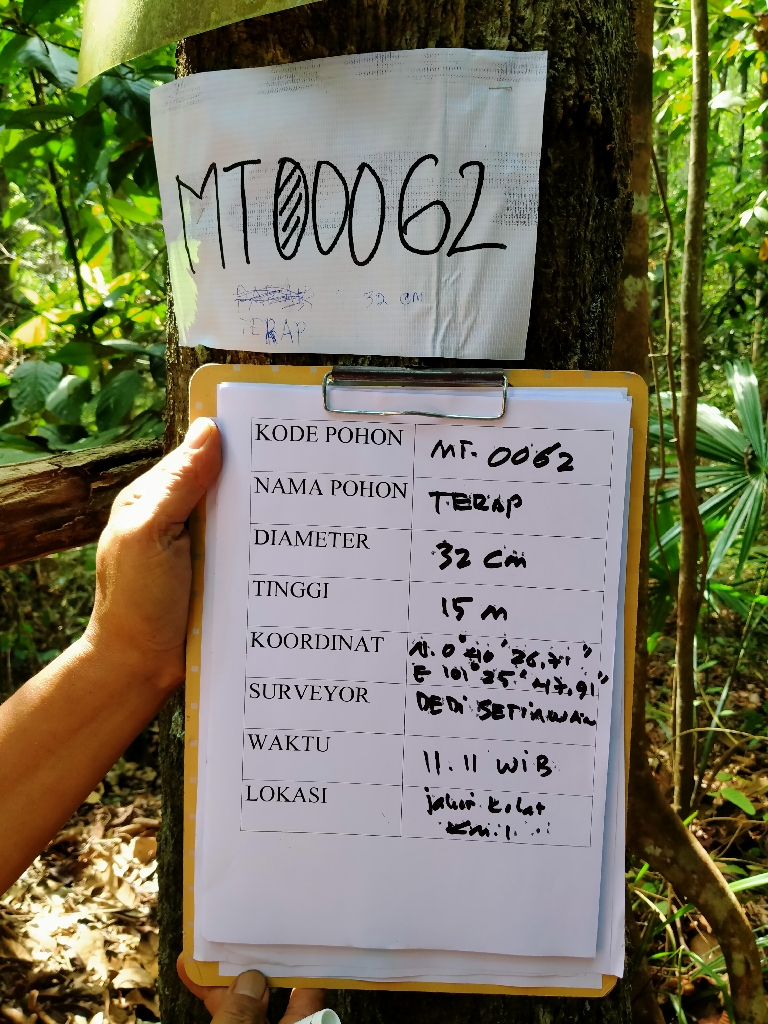 MT00062
32 cm
TERAP
KODE POHON MT. 0062
NAMA POHON TERAP
DIAMETER 32 cm
TINGGI 15 m
KOORDINAT N. 0° 40' 26,71"
E 101° 25' 47,91"
SURVEYOR DEDI SETIAWAN
WAKTU 11.11 WIB
LOKASI